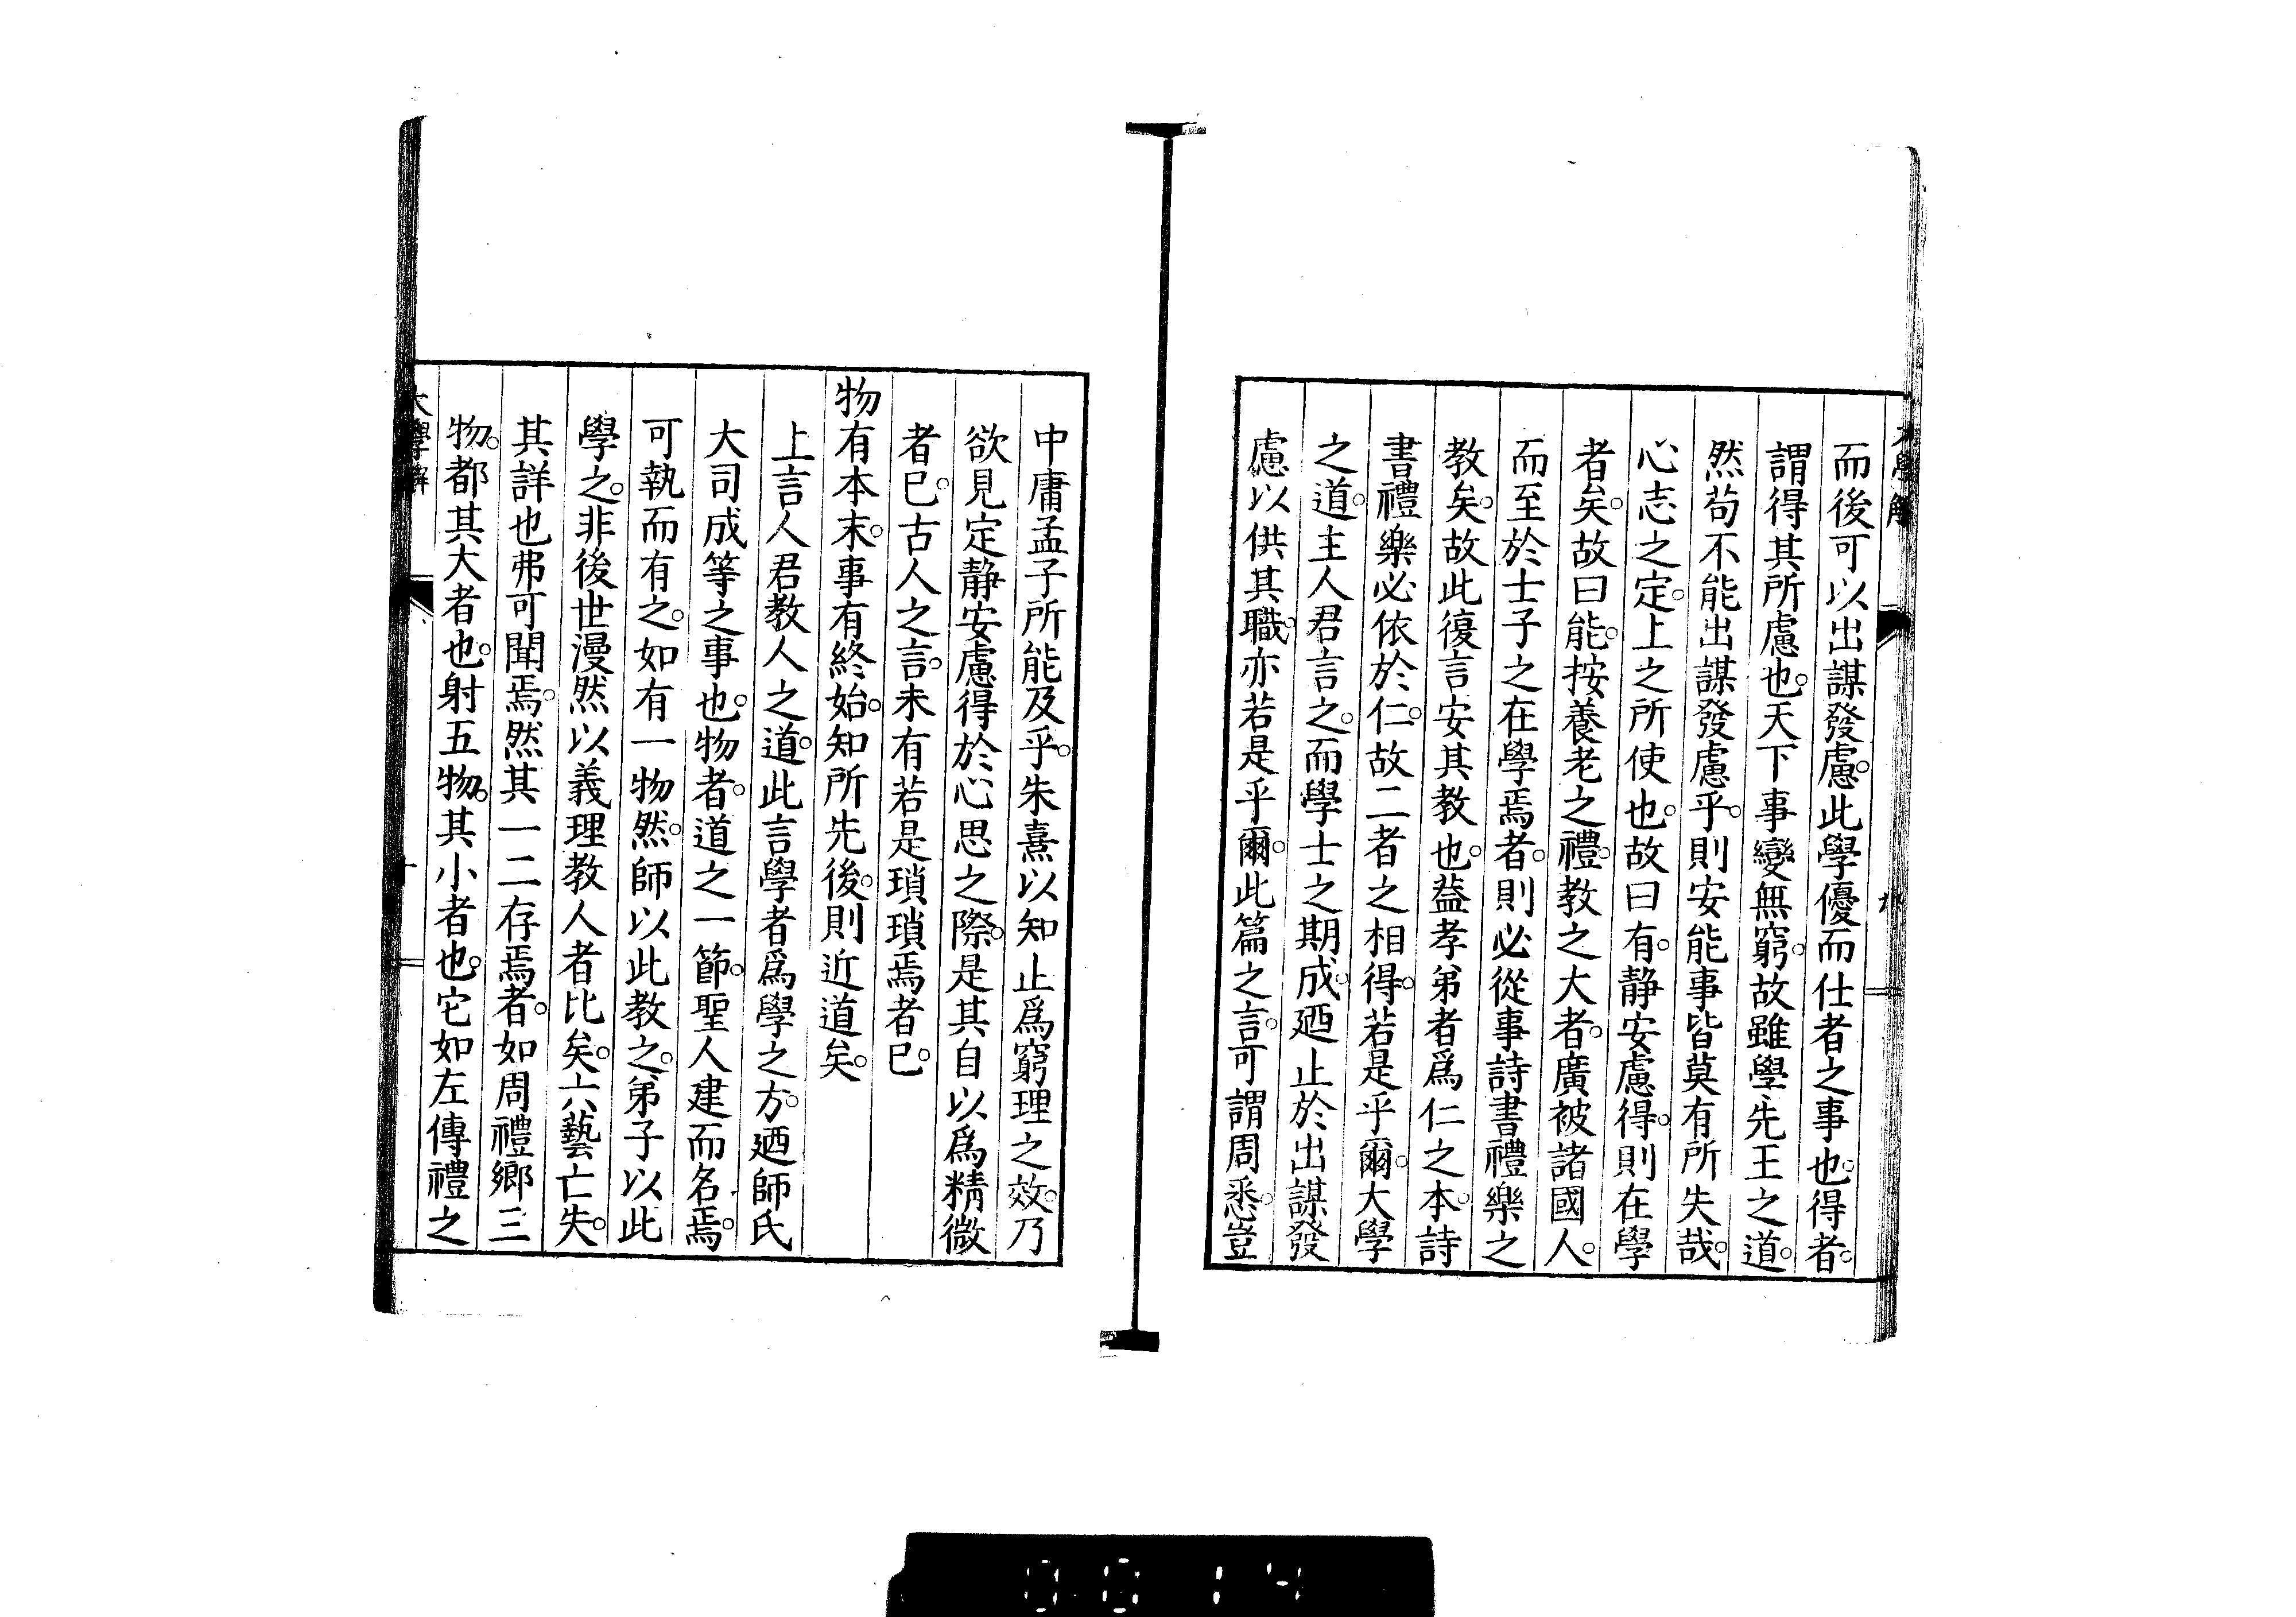 大學解
而後可以出謀發慮。此學優而仕者之事也。得者。
謂得其所慮也。天下事變無窮。故雖學先王之道。
然苟不能出謀發慮乎。則安能事皆莫有所失哉。
心志之定。上之所使也。故曰有。靜安慮得。則在學
者矣。故曰能。按養老之禮。教之大者。廣被諸國人。
而至於士子之在學焉者。則必從事詩書禮樂之
教矣。故此復言安其教也。葢孝弟者爲仁之本。詩
書禮樂必依於仁。故二者之相得。若是乎爾。大學
之道。主人君言之。而學士之期成。廼止於出謀發
慮以供其職。亦若是乎爾。此篇之言。可謂周悉。豈
中庸孟子所能及乎。朱熹以知止爲窮理之效。乃
欲見定靜安慮得於心思之際。是其自以爲精微
者已。古人之言。未有若是瑣瑣焉者已。
物有本末。事有終始。知所先後。則近道矣。
上言人君教人之道。此言學者爲學之方。廼師氏
大司成等之事也。物者。道之一節。聖人建而名焉。
可執而有之。如有一物然。師以此教之。弟子以此
學之。非後世漫然以義理教人者比矣。六藝亡失。
其詳也弗可聞焉。然其一二存焉者。如周禮鄉三
物。都其大者也。射五物。其小者也。它如左傳禮之
大學解
十
0014